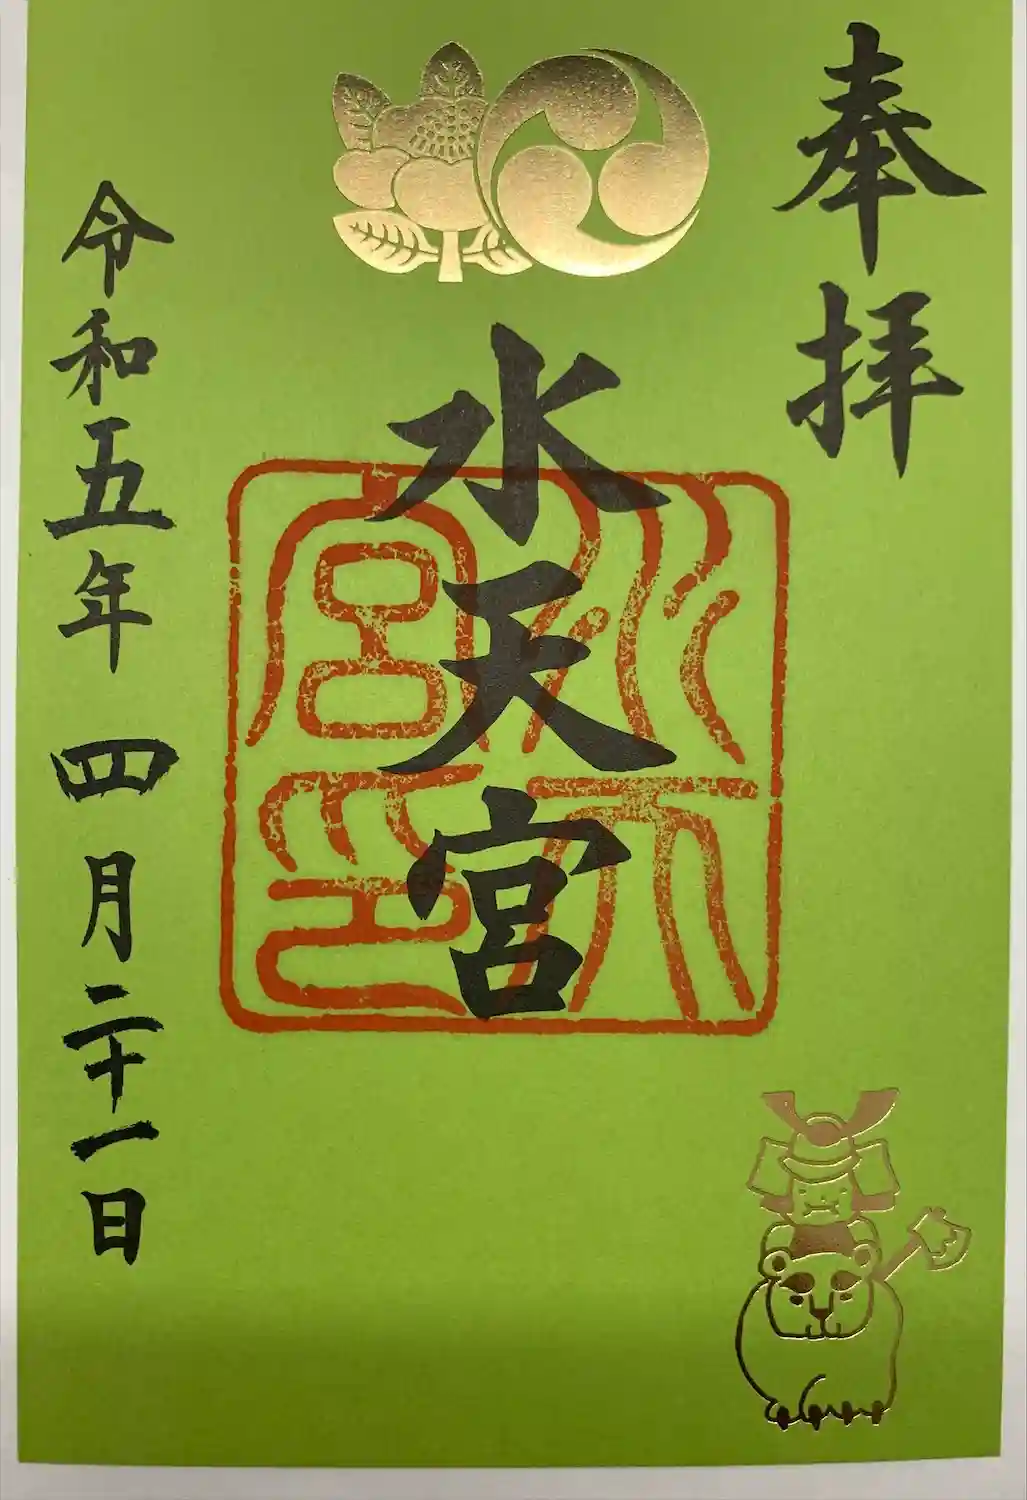 奉拝
水天宮
水天宮印
令和五年四月二十一日